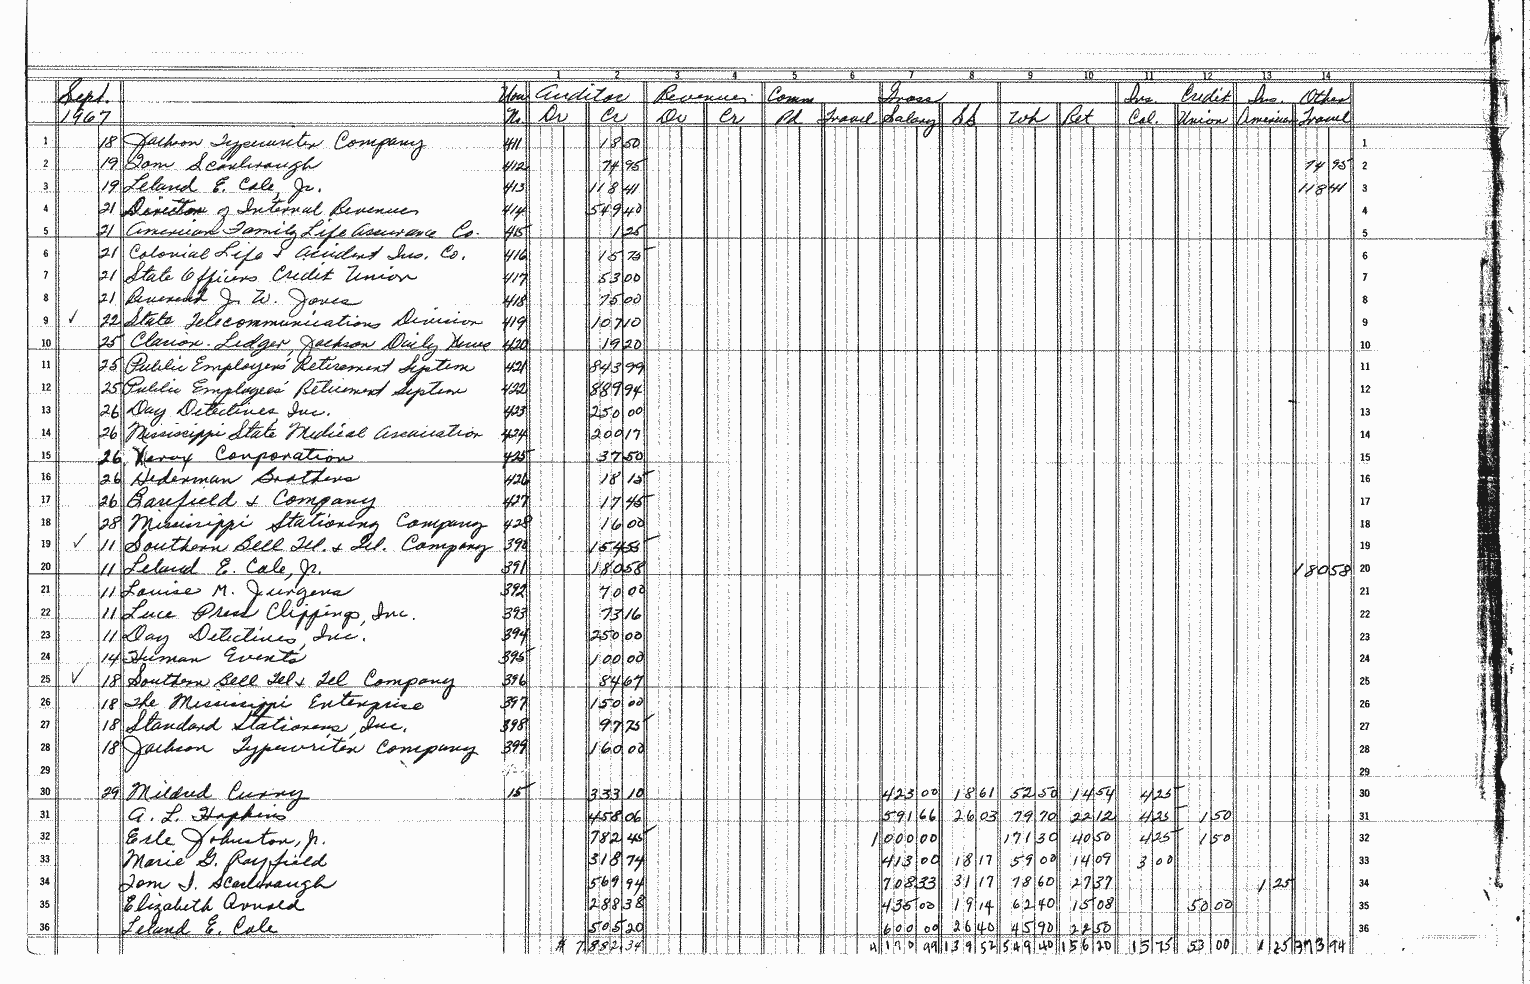 1 2 3 4 5 6 7 8 9 10 11 12 13 14
Sept. Vou Auditor Revenues Comm Gross Ins. Credit Ins. Other
1967 No. Dr Cr Dr Cr Pd Travel Salary SS Wh Ret Col. Union American Travel
1 18 Jackson Typewriter Company 411 18 50 1
2 19 Tom Scarbrough 412 74 95 74 95 2
3 19 Leland E. Cole, Jr. 413 118 41 118 41 3
4 21 Director of Internal Revenue 414 549 40 4
5 21 American Family Life Assurance Co. 415 1 25 5
6 21 Colonial Life & Accident Ins. Co. 416 15 75 6
7 21 State Officers Credit Union 417 53 00 7
8 21 Reverend J. W. Jones 418 75 00 8
9 ✓ 22 State Telecommunications Division 419 107 10 9
10 25 Clarion-Ledger, Jackson Daily News 420 19 20 10
11 25 Public Employees' Retirement System 421 843 99 11
12 25 Public Employees' Retirement System 422 889 94 12
13 26 Day Detectives Inc. 423 250 00 13
14 26 Mississippi State Medical Association 424 200 17 14
15 26 Xerox Corporation 425 37 50 15
16 26 Hederman Brothers 426 18 15 16
17 26 Barefield & Company 427 17 45 17
18 28 Mississippi Stationing Company 428 16 00 18
19 ✓ 11 Southern Bell Tel. & Tel. Company 390 154 55 19
20 11 Leland E. Cole, Jr. 391 180 58 180 58 20
21 11 Louise M. Jurgens 392 70 00 21
22 11 Luce Press Clippings, Inc. 393 73 16 22
23 11 Day Detectives, Inc. 394 250 00 23
24 14 Human Events 395 100 00 24
25 ✓ 18 Southern Bell Tel & Tel Company 396 84 67 25
26 18 The Mississippi Enterprise 397 150 00 26
27 18 Standard Stationers, Inc. 398 97 75 27
28 18 Jackson Typewriter Company 399 160 00 28
29 29
30 29 Mildred Curry 15 333 10 423 00 18 61 52 50 14 54 4 25 30
31 A. L. Hopkins 458 06 591 66 26 03 79 70 22 12 4 25 1 50 31
32 Erle Johnston, Jr. 782 45 1 000 00 171 30 40 50 4 25 1 50 32
33 Marie G. Rayfield 318 74 413 00 18 17 59 00 14 09 3 00 33
34 Tom J. Scarbrough 569 94 708 33 31 17 78 60 27 37 1 25 34
35 Elizabeth Arnold 288 38 435 00 19 14 62 40 15 08 50 00 35
36 Leland E. Cole 505 20 600 00 26 40 45 90 22 50 36
# 7,882.34 4 170 99 139 52 549 40 156 20 15 75 53 00 1 25 373 94